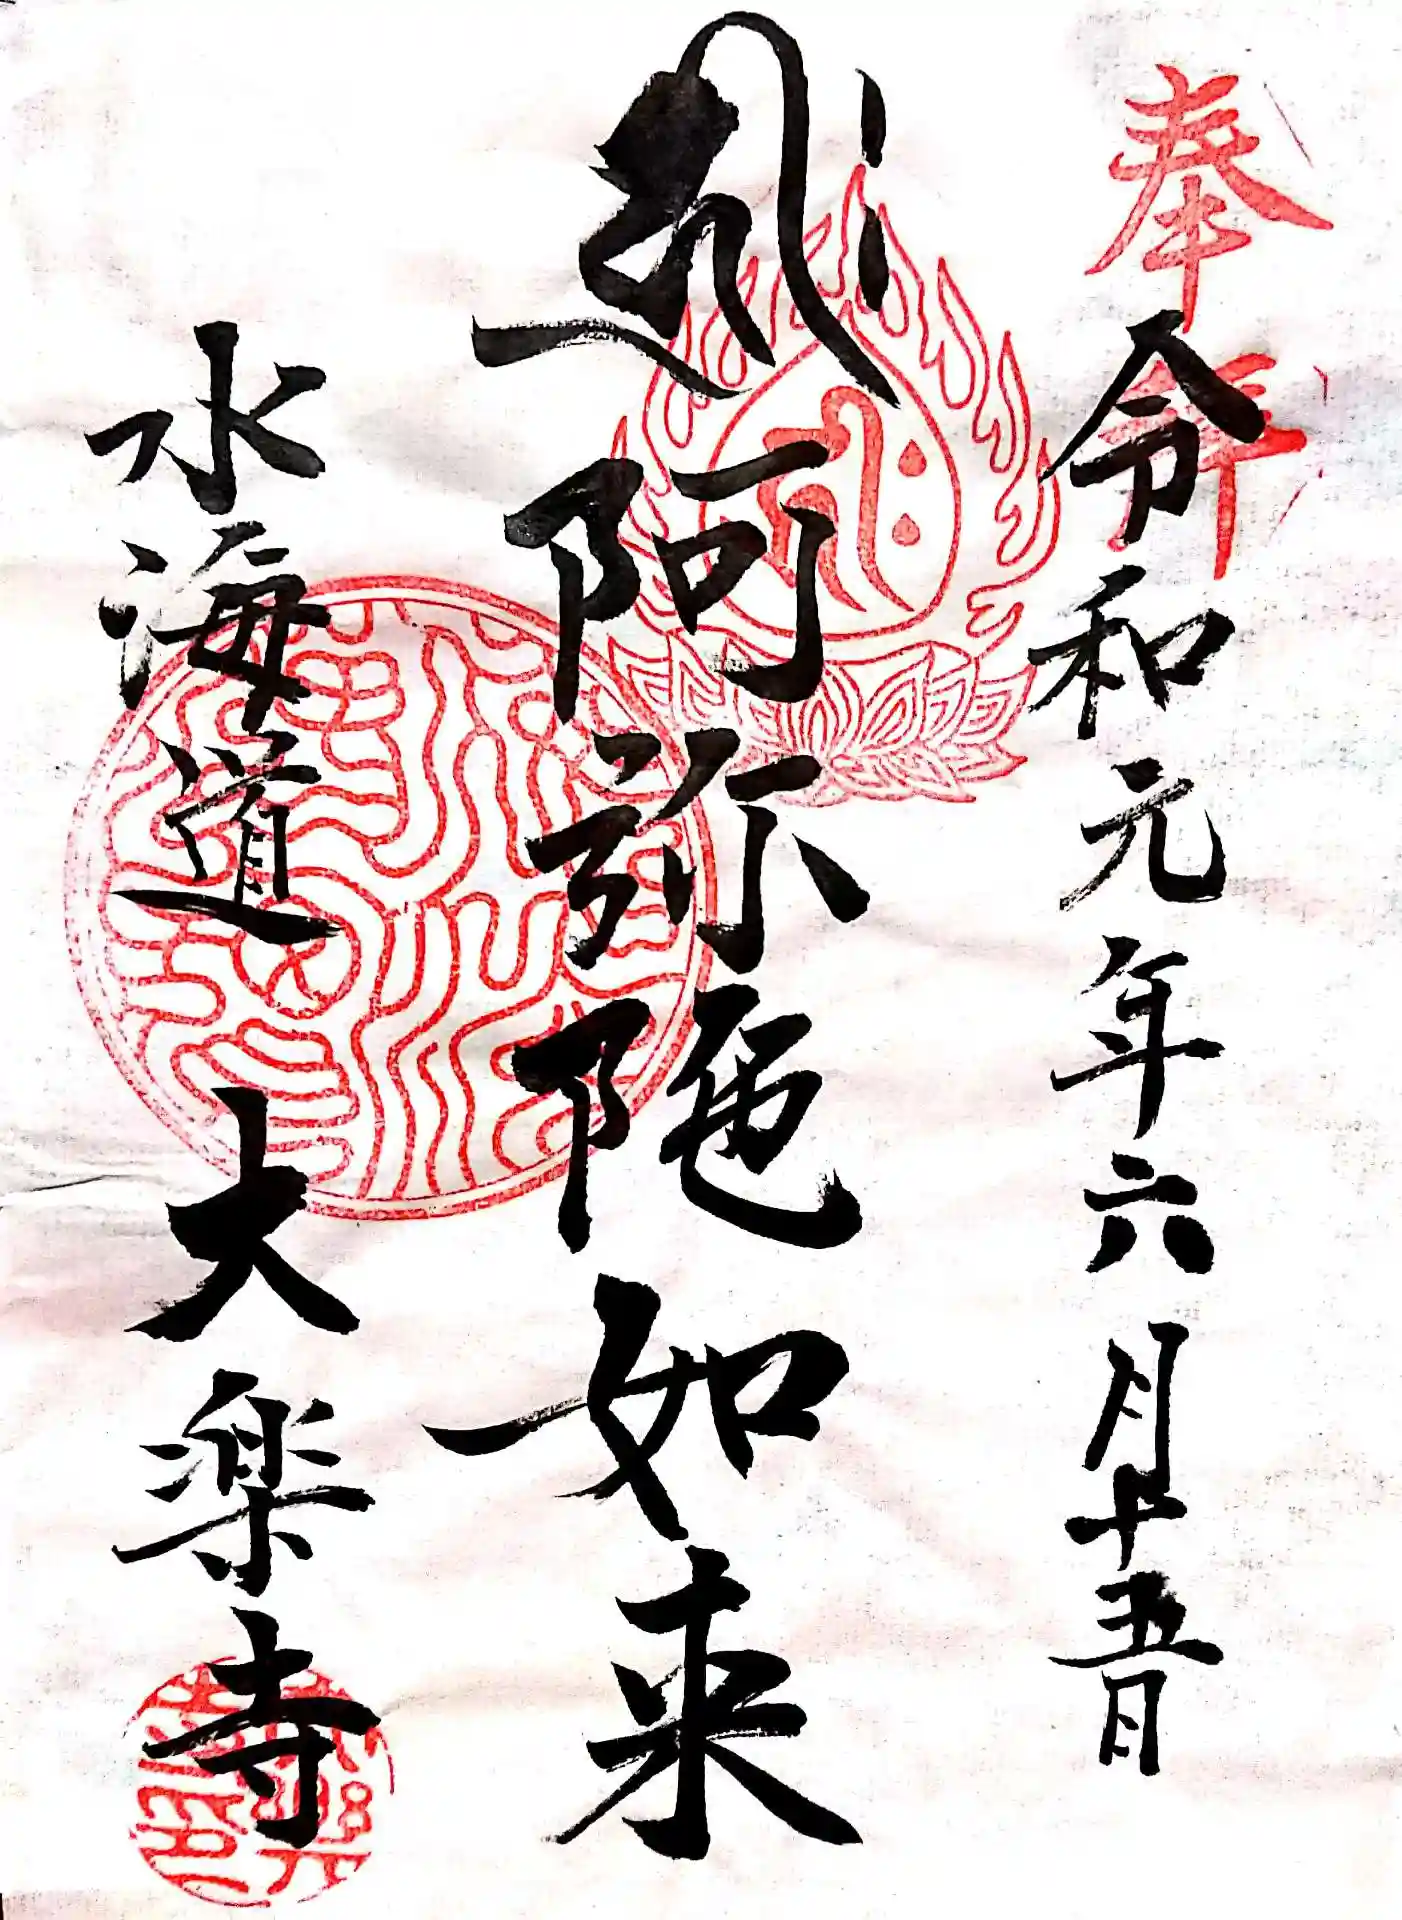 奉拝
令和元年六月十五日
𑖮𑖿𑖨𑖱𑖾 阿弥陀如来
水海道 大楽寺